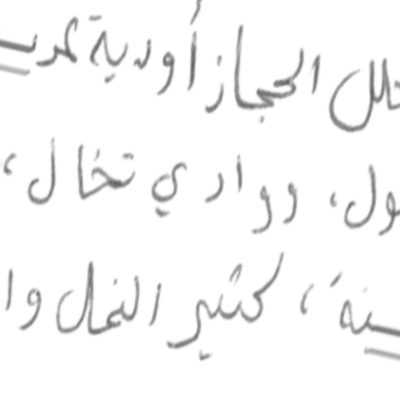 تتخلل الحجاز أودية
ول، ووادي تخال،
سنة، كثير النخل وا